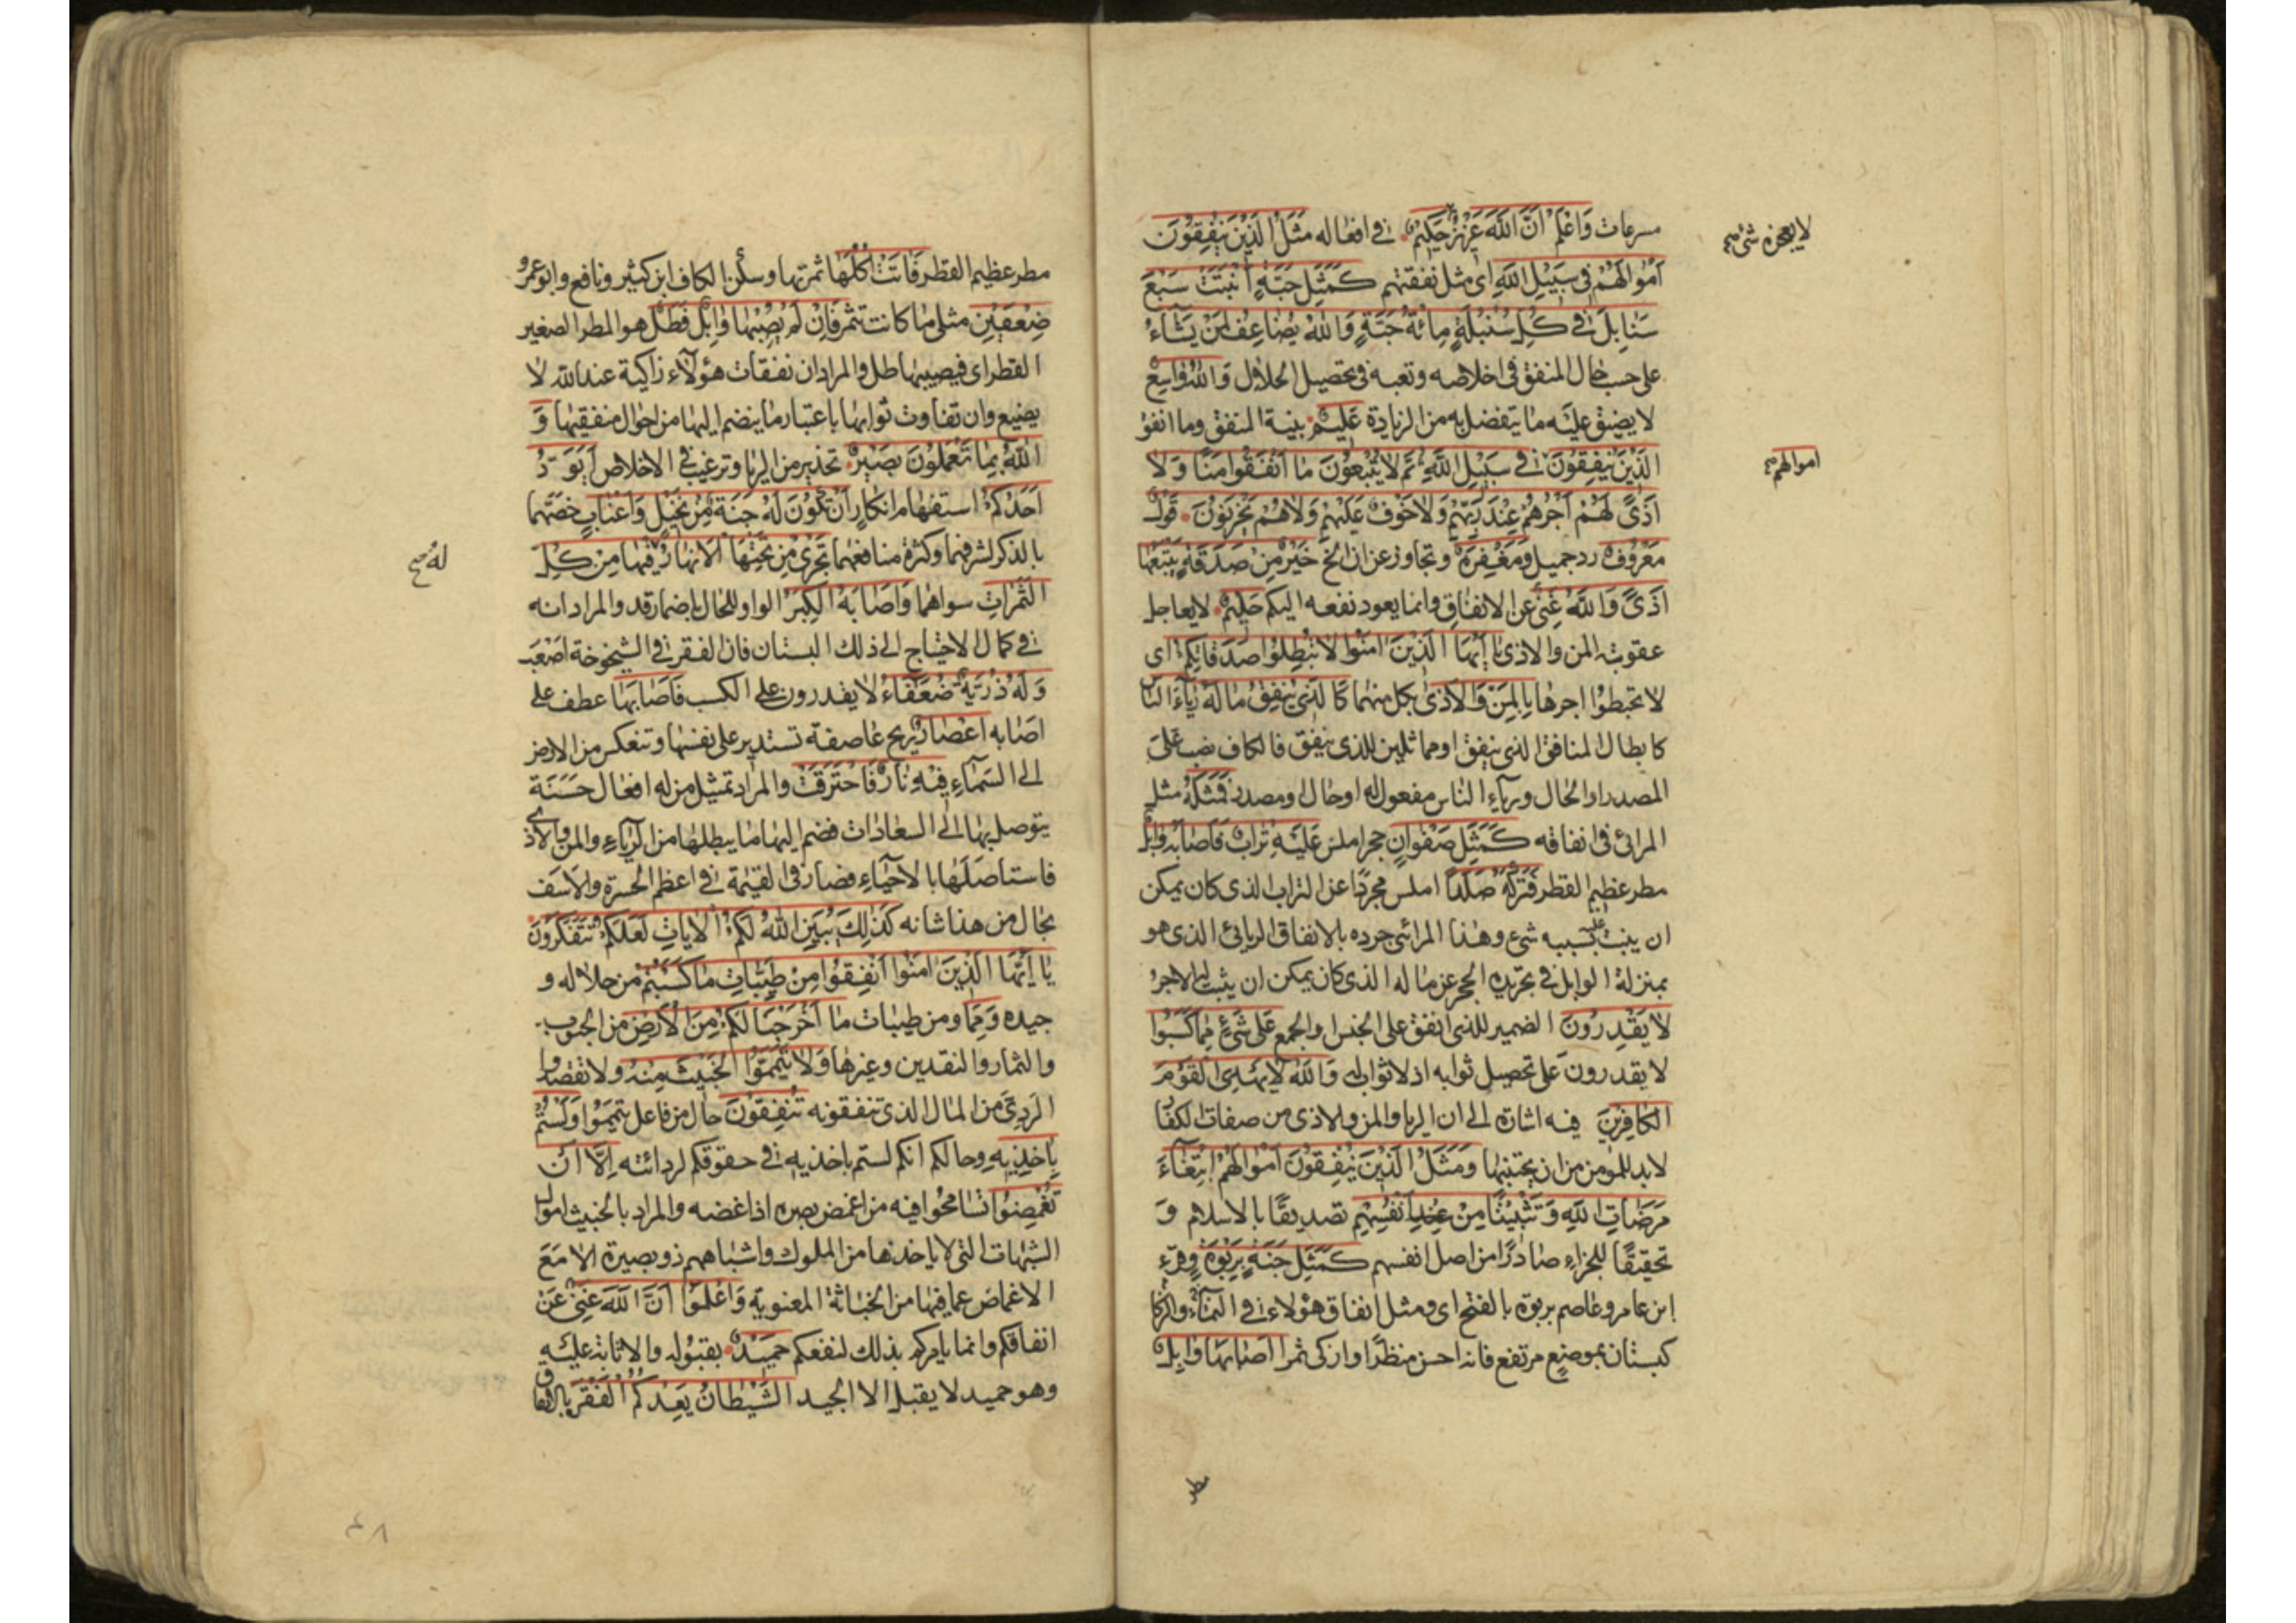 مسرعات وَاعْلَمْ اَنَّ اللّٰهَ عَزِيزٌ حَكِيمٌ في افعاله مَثَلُ الَّذِينَ يُنْفِقُونَ
لا يعجزه شئ صح
اَمْوَالَهُمْ فى سَبِيلِ اللّٰهِ اى مثل نفقتهم كَمَثَلِ حَبَّةٍ اَنْبَتَتْ سَبْعَ
سَنَابِلَ فى كُلِّ سُنْبُلَةٍ مِائَةُ حَبَّةٍ وَاللّٰهُ يُضَاعِفُ لِمَنْ يَشَاءُ
على حسب حال المنفق فى اخلاصه وتعبه فى تحصيل الحلال وَاللّٰهُ وَاسِعٌ
لا يضيق عليه ما يتفضل به من الزيادة عَلِيمٌ بنية المنفق وما انفق
الَّذِينَ يُنْفِقُونَ فى سَبِيلِ اللّٰهِ ثُمَّ لَا يُتْبِعُونَ مَا اَنْفَقُوا مَنًّا وَلَا
اموالهم صح
اَذًى لَهُمْ اَجْرُهُمْ عِنْدَ رَبِّهِمْ وَلَا خَوْفٌ عَلَيْهِمْ وَلَا هُمْ يَحْزَنُونَ قَوْلٌ
مَعْرُوفٌ رد جميل وَمَغْفِرَةٌ وتجاوز عن الخ خَيْرٌ مِنْ صَدَقَةٍ يَتْبَعُهَا
اَذًى وَاللّٰهُ غَنِىٌّ عن الانفاق وانما يعود نفعه اليكم حَلِيمٌ لا يعاجل
عقوبة المن والاذى يَا اَيُّهَا الَّذِينَ اٰمَنُوا لَا تُبْطِلُوا صَدَقَاتِكُمْ اى
لا تحبطوا اجرها بِالْمَنِّ وَالْاَذٰى بكل منهما كَالَّذِى يُنْفِقُ مَالَهُ رِيَاءَ النَّاسِ
كابطال المنافق الذى ينفق او مماثلين للذى ينفق فالكاف نصب على
المصدر او الحال ورياء الناس مفعول له او حال او مصدر فَمَثَلُهُ مثل
المرائى فى انفاقه كَمَثَلِ صَفْوَانٍ حجر املس عَلَيْهِ تُرَابٌ فَاَصَابَهُ وَابِلٌ
مطر عظيم القطر فَتَرَكَهُ صَلْدًا املس مجردًا عن التراب الذى كان يمكن
ان ينبت عليه بسببه شئ وهذا المرائى جرده بالانفاق الريائى الذى هو
بمنزلة الوابل فى تجريده الحجر عن ماله الذى كان يمكن ان يثبت له الاجر
لَا يَقْدِرُونَ الضمير للذى انفق على الجنس والجمع عَلٰى شَئْ مِمَّا كَسَبُوا
لا يقدرون على تحصيل ثوابه اذ لا ثواب له وَاللّٰهُ لَا يَهْدِى الْقَوْمَ
الْكَافِرِينَ فيه اشارة الى ان الريا والمن والاذى من صفات الكفار
لا بد للمؤمن من ان يجتنبها وَمَثَلُ الَّذِينَ يُنْفِقُونَ اَمْوَالَهُمُ ابْتِغَاءَ
مَرْضَاتِ اللّٰهِ وَتَثْبِيتًا مِنْ عند اَنْفُسِهِمْ تصديقًا بالاسلام و
تحقيقًا للجزاء صادرًا من اصل انفسهم كَمَثَلِ جَنَّةٍ بِرَبْوَةٍ وقرء
ابن عامر وعاصم بربوة بالفتح اى ومثل انفاق هؤلاء فى النماء والزكا
كبستان بموضع مرتفع فانه احسن منظرًا وازكى ثمرا اَصَابَهَا وَابِلٌ
مطر
مطر عظيم القطر فَاٰتَتْ اُكُلَهَا ثمرتها وسكن الكاف ابن كثير ونافع وابو عمرو
ضِعْفَيْنِ مثلى ما كانت تثمر فَاِنْ لَمْ يُصِبْهَا وَابِلٌ فَطَلٌّ هو المطر الصغير
القطر اى فيصيبها طل والمراد ان نفقات هؤلاء زاكية عند الله لا
يضيع وان تفاوت ثوابها باعتبار ما ينضم اليها من احوال منفقيها وَ
اللّٰهُ بِمَا تَعْمَلُونَ بَصِيرٌ تحذير من الريا وترغيب فى الاخلاص اَيَوَدُّ
اَحَدُكُمْ استفهام انكار اَنْ تَكُونَ لَهُ جَنَّةٌ مِنْ نَخِيلٍ وَاَعْنَابٍ خصّهما
بالذكر لشرفهما وكثرة منافعهما تَجْرِى مِنْ تَحْتِهَا الْاَنْهَارُ فِيهَا مِنْ كُلِّ
له صح
الثَّمَرَاتِ سواهما وَاَصَابَهُ الْكِبَرُ الواو للحال باضمار قد والمراد انه
فى كمال الاحتياج الى ذلك البستان فان الفقر فى الشيخوخة اصعب
وَلَهُ ذُرِّيَّةٌ ضُعَفَاءُ لا يقدرون على الكسب فَاَصَابَهَا عطف على
اصابه اِعْصَارٌ ريح عاصفة تستدير على نفسها وتنعكس من الارض
الى السماء فِيهِ نَارٌ فَاحْتَرَقَتْ والمراد تمثيل من له افعال حسنة
يتوصل بها الى السعادات فضم اليها ما يبطلها من الرياء والمن والاذى
فاستاصلها بالاحياء فصار فى القيمة فى اعظم الحسرة والاسف
بحال من هذا شانه كَذٰلِكَ يُبَيِّنُ اللّٰهُ لَكُمُ الْاٰيَاتِ لَعَلَّكُمْ تَتَفَكَّرُونَ
يَا اَيُّهَا الَّذِينَ اٰمَنُوا اَنْفِقُوا مِنْ طَيِّبَاتِ مَا كَسَبْتُمْ من حلاله و
جيده وَمِمَّا ومن طيبات ما اَخْرَجْنَا لَكُمْ مِنَ الْاَرْضِ من الحبوب
والثمار والنقدين وغيرها وَلَا تَيَمَّمُوا الْخَبِيثَ مِنْهُ ولا تقصدوا
الردىّ من المال الذى تنفقونه تُنْفِقُونَ حال من فاعل تيمموا وَلَسْتُمْ
بِاٰخِذِيهِ وحالكم انكم لستم باخذيه فى حقوقكم لردائته اِلَّا اَنْ
تُغْمِضُوا تسامحوا فيه من اغمض بصره اذا غضه والمراد بالخبيث اموال
الشبهات التى لا ياخذها من الملوك واشباههم ذو بصيرة الا مع
الاغماض عما فيها من الخباثة المعنوية وَاعْلَمُوا اَنَّ اللّٰهَ غَنِىٌّ عَنْ
انفاقكم وانما يامركم بذلك لنفعكم حَمِيدٌ بقبوله والاثابة عليه
وهو حميد لا يقبل الا الجيد الشَّيْطَانُ يَعِدُكُمُ الْفَقْرَ بالانفاق